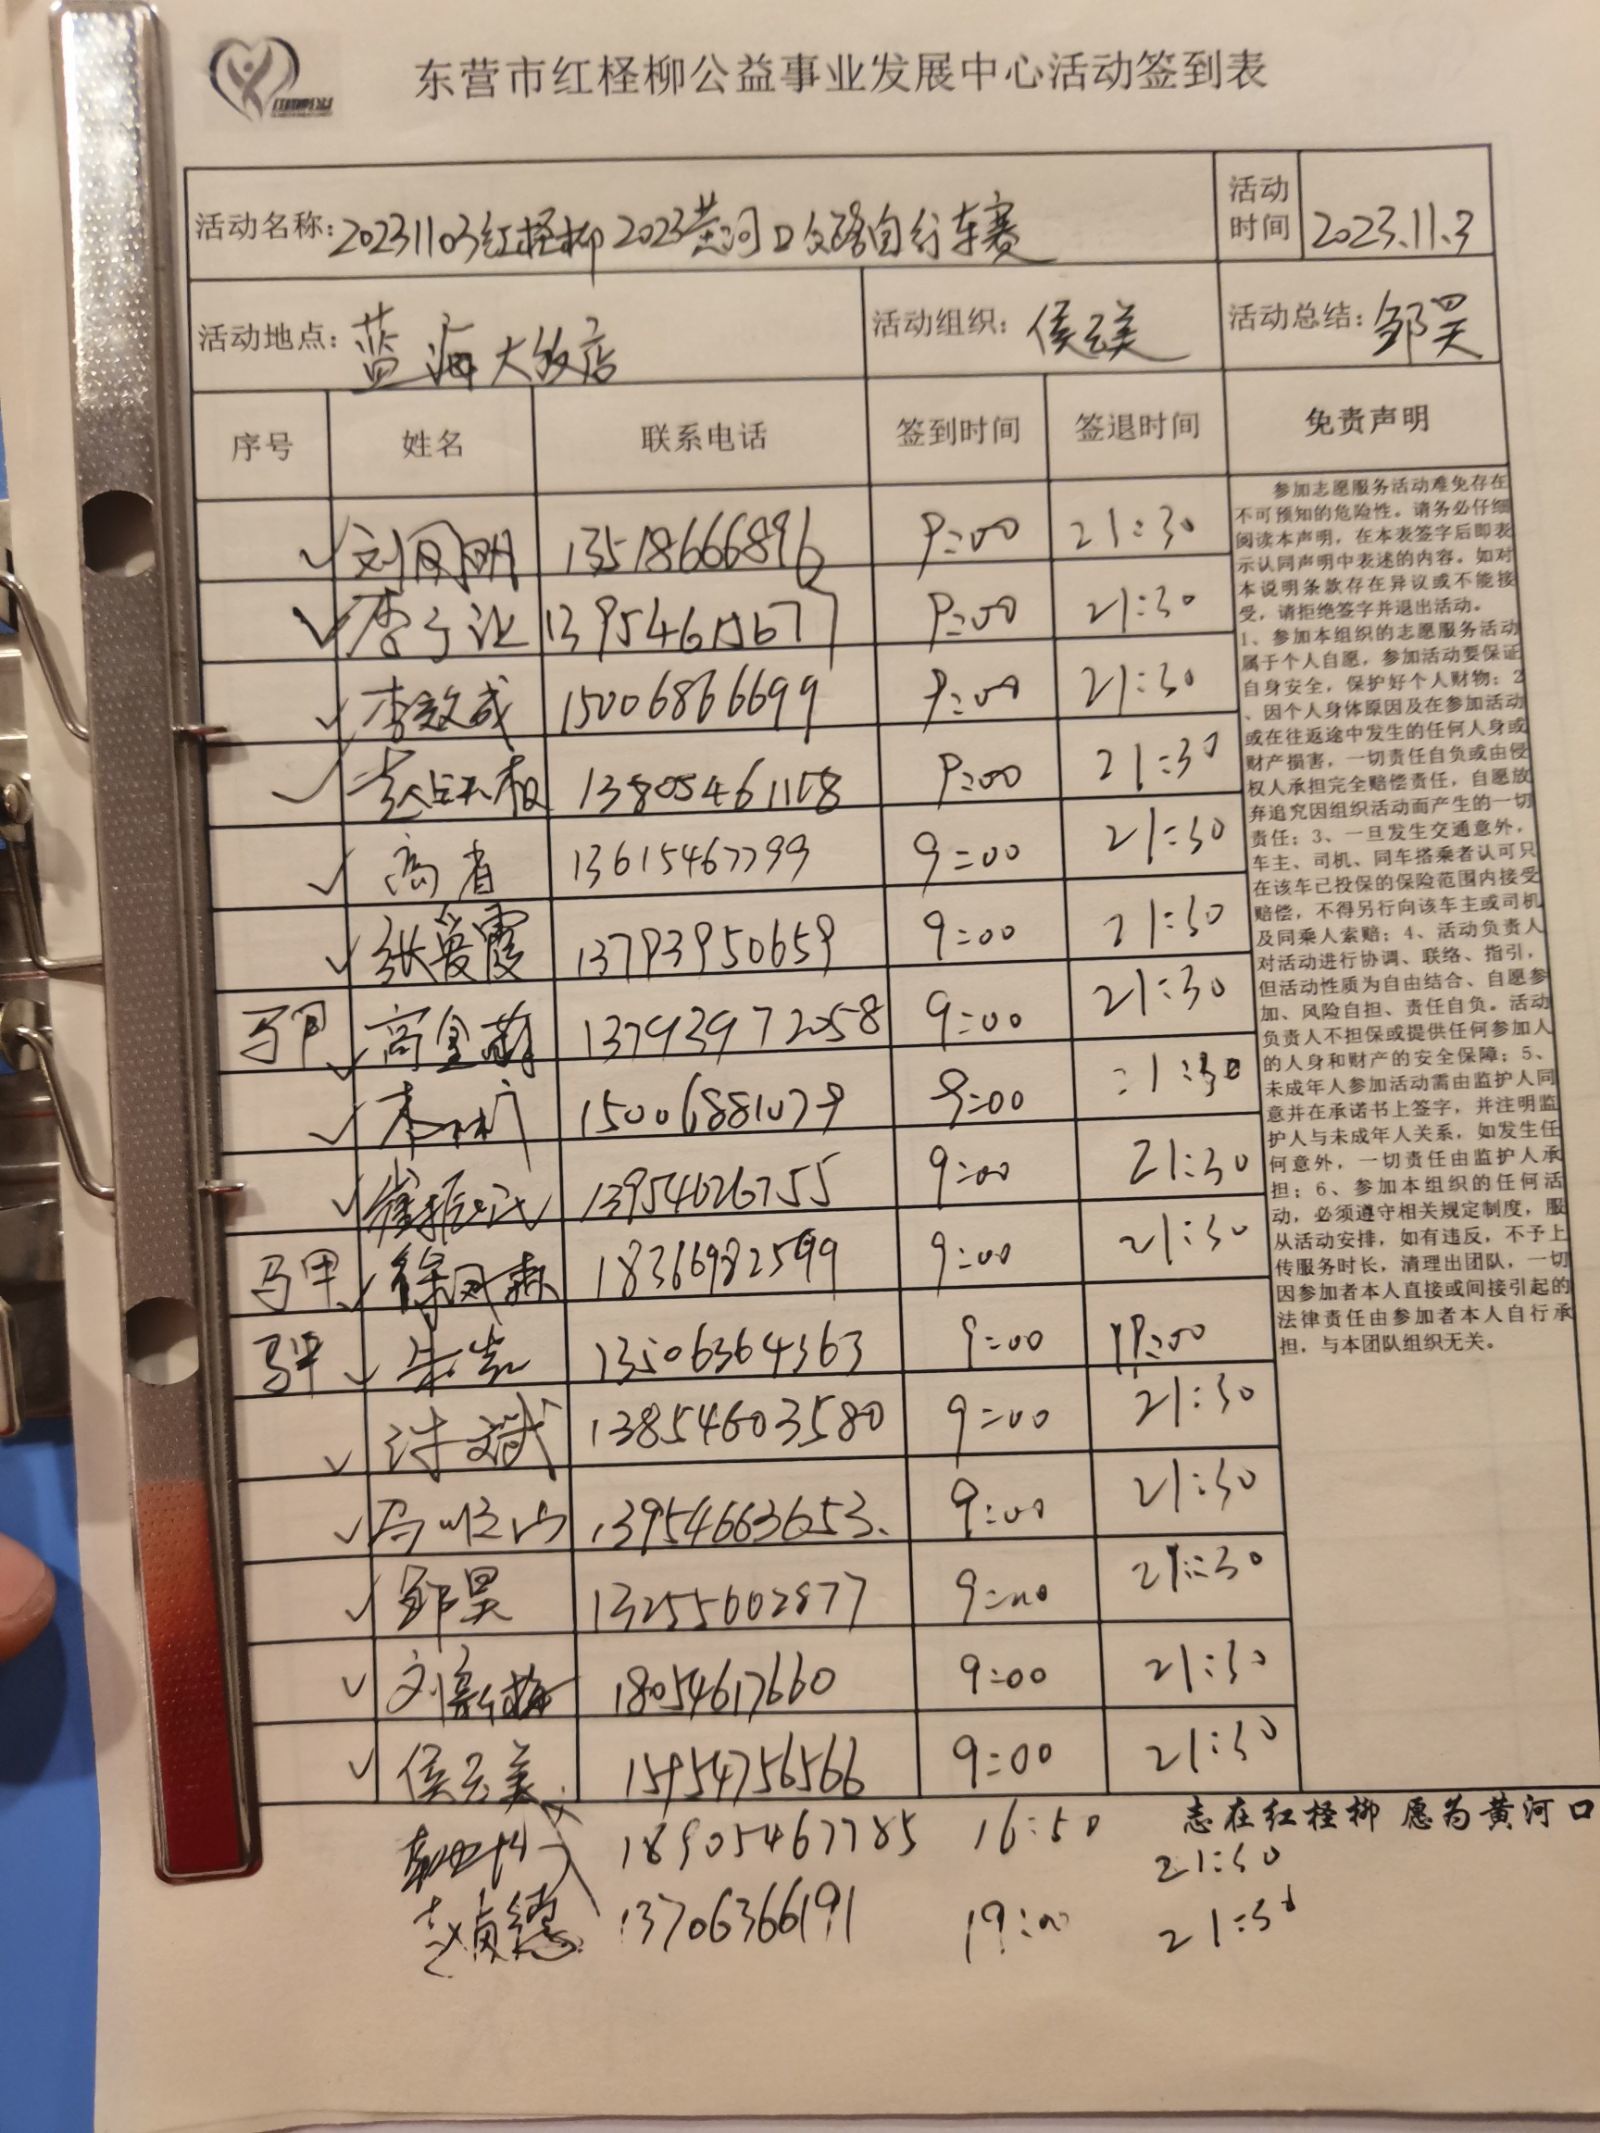 东营市红柽柳公益事业发展中心活动签到表
活动名称: 20231103红柽柳2023黄河口公路自行车赛
活动时间 2023.11.3
活动地点: 蓝海大饭店
活动组织: 侯云美
活动总结: 邹昊
序号 姓名 联系电话 签到时间 签退时间 免责声明
13518666896 9:00 21:30
13954615677 9:00 21:30
李效成 15006866699 9:00 21:30
13805461158 9:00 21:30
高省 13615467799 9:00 21:30
张爱霞 13793950659 9:00 21:30
马甲 高金萌 13793972058 9:00 21:30
15006881079 9:00 21:30
崔振武 13954626755 9:00 21:30
马甲 徐凤森 18366982599 9:00 21:30
马甲 13506364363 9:00 19:00
许斌 13854603580 9:00 21:30
13954663653. 9:00 21:30
邹昊 13255602877 9:00 21:30
刘新梅 18054617660 9:00 21:30
侯云美 15954756566 9:00 21:30
18905467785 16:50 21:30
赵贞德 13706366191 19:00 21:30
参加志愿服务活动难免存在
不可预知的危险性。请务必仔细
阅读本声明，在本表签字后即表
示认同声明中表述的内容。如对
本说明条款存在异议或不能接
受，请拒绝签字并退出活动。
1、参加本组织的志愿服务活动
属于个人自愿，参加活动要保证
自身安全，保护好个人财物；2
、因个人身体原因及在参加活动
或在往返途中发生的任何人身或
财产损害，一切责任自负或由侵
权人承担完全赔偿责任，自愿放
弃追究因组织活动而产生的一切
责任；3、一旦发生交通意外，
车主、司机、同车搭乘者认可只
在该车已投保的保险范围内接受
赔偿，不得另行向该车主或司机
及同乘人索赔；4、活动负责人
对活动进行协调、联络、指引，
但活动性质为自由结合、自愿参
加、风险自担、责任自负。活动
负责人不担保或提供任何参加人
的人身和财产的安全保障；5、
未成年人参加活动需由监护人同
意并在承诺书上签字，并注明监
护人与未成年人关系，如发生任
何意外，一切责任由监护人承
担；6、参加本组织的任何活
动，必须遵守相关规定制度，服
从活动安排，如有违反，不予上
传服务时长，清理出团队，一切
因参加者本人直接或间接引起的
法律责任由参加者本人自行承
担，与本团队组织无关。
志在红柽柳 愿为黄河口